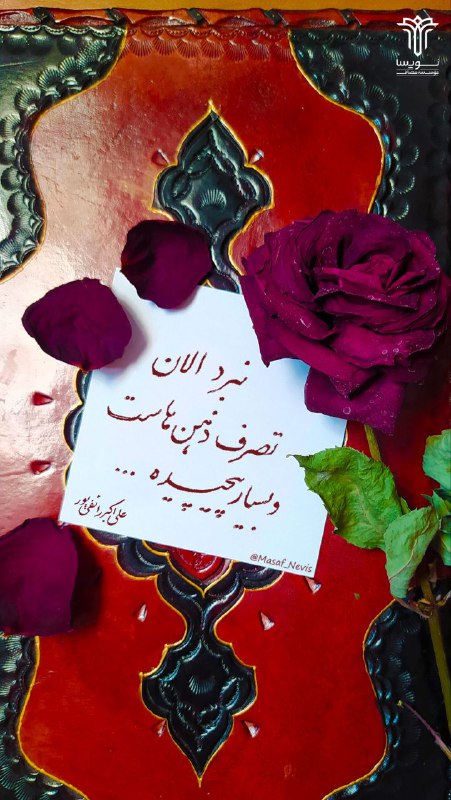 نویسا
موسسه مصاف
نبرد الان
تصرف ذهن هاست
و بسیار پیچیده ...
علی اکبر رائفی پور
@Masaf_Nevis